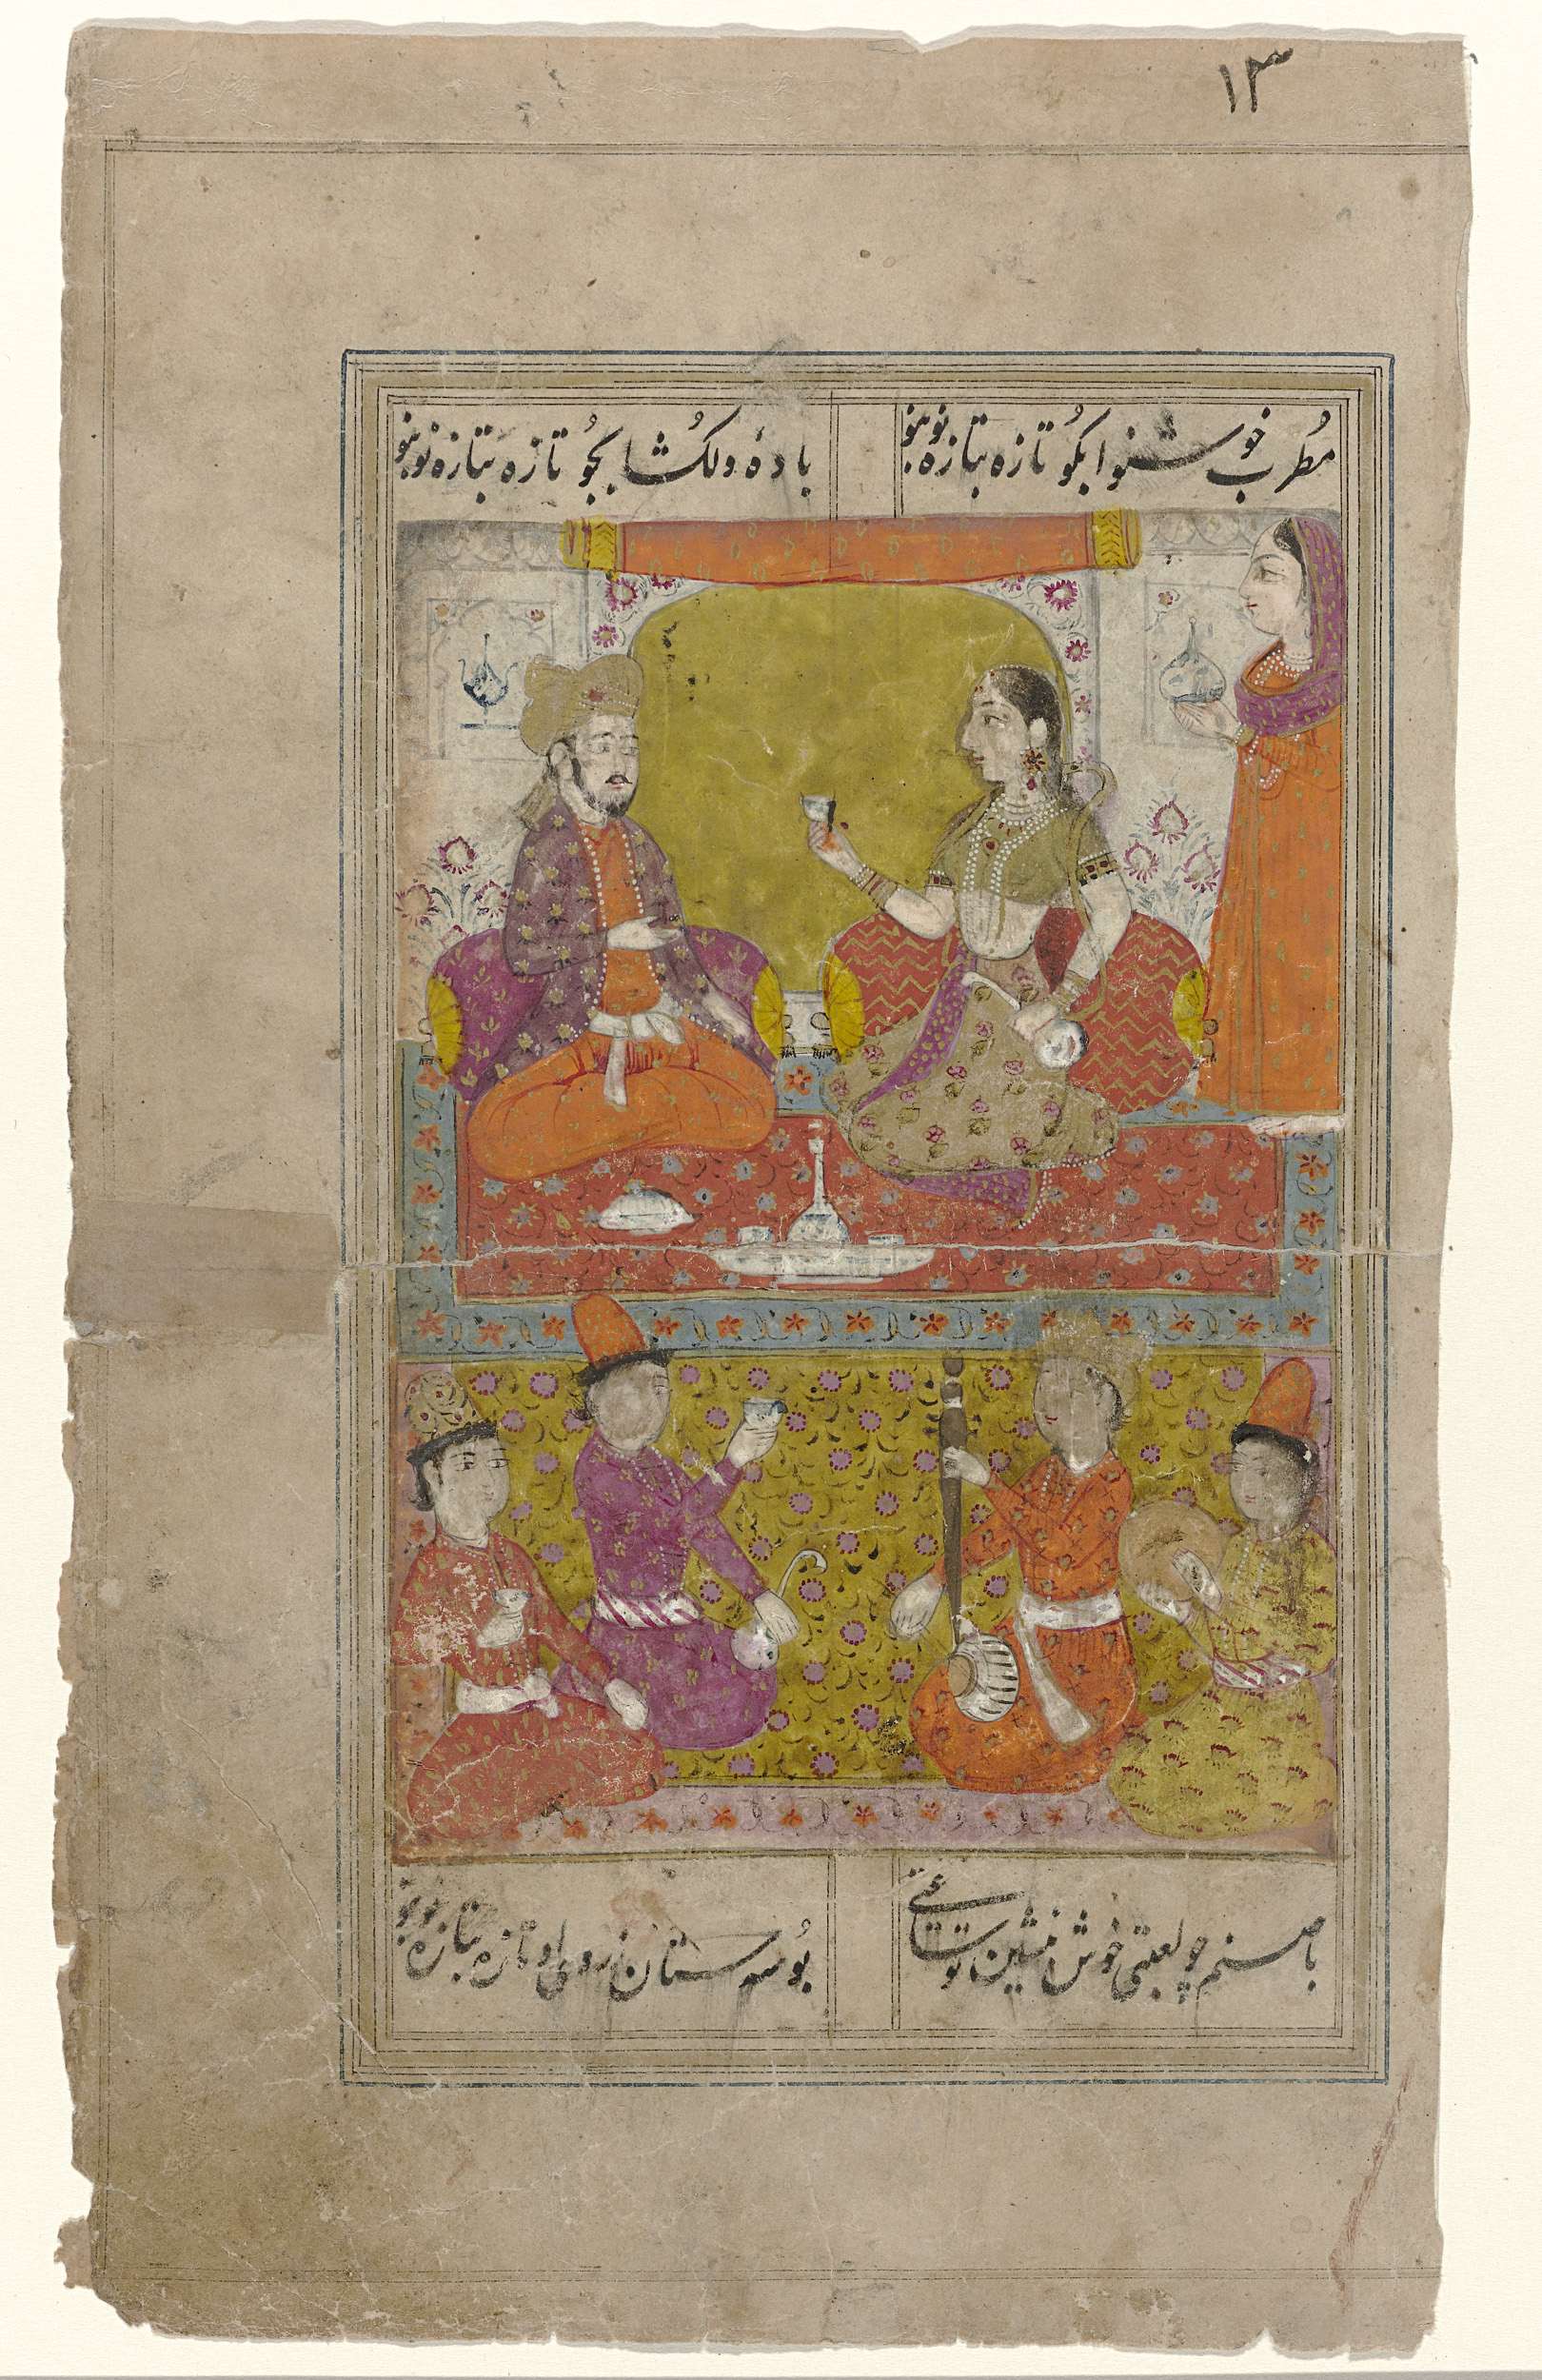 ۱۳
مطرب خوشنوا بگو تازه بتازه نو بنو
باده دلکشا بجو تازه بتازه نو بنو
با صنم چو لعبتی خوش بنشین تو ساعتی
بوسه ستان ز روی او تازه بتازه نو بنو